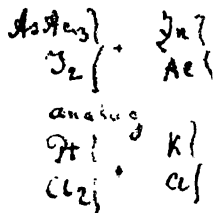 AsAe₃} · Jn}
J₂} Ae}
analog
Pt} · K}
Cl₂} Cl}